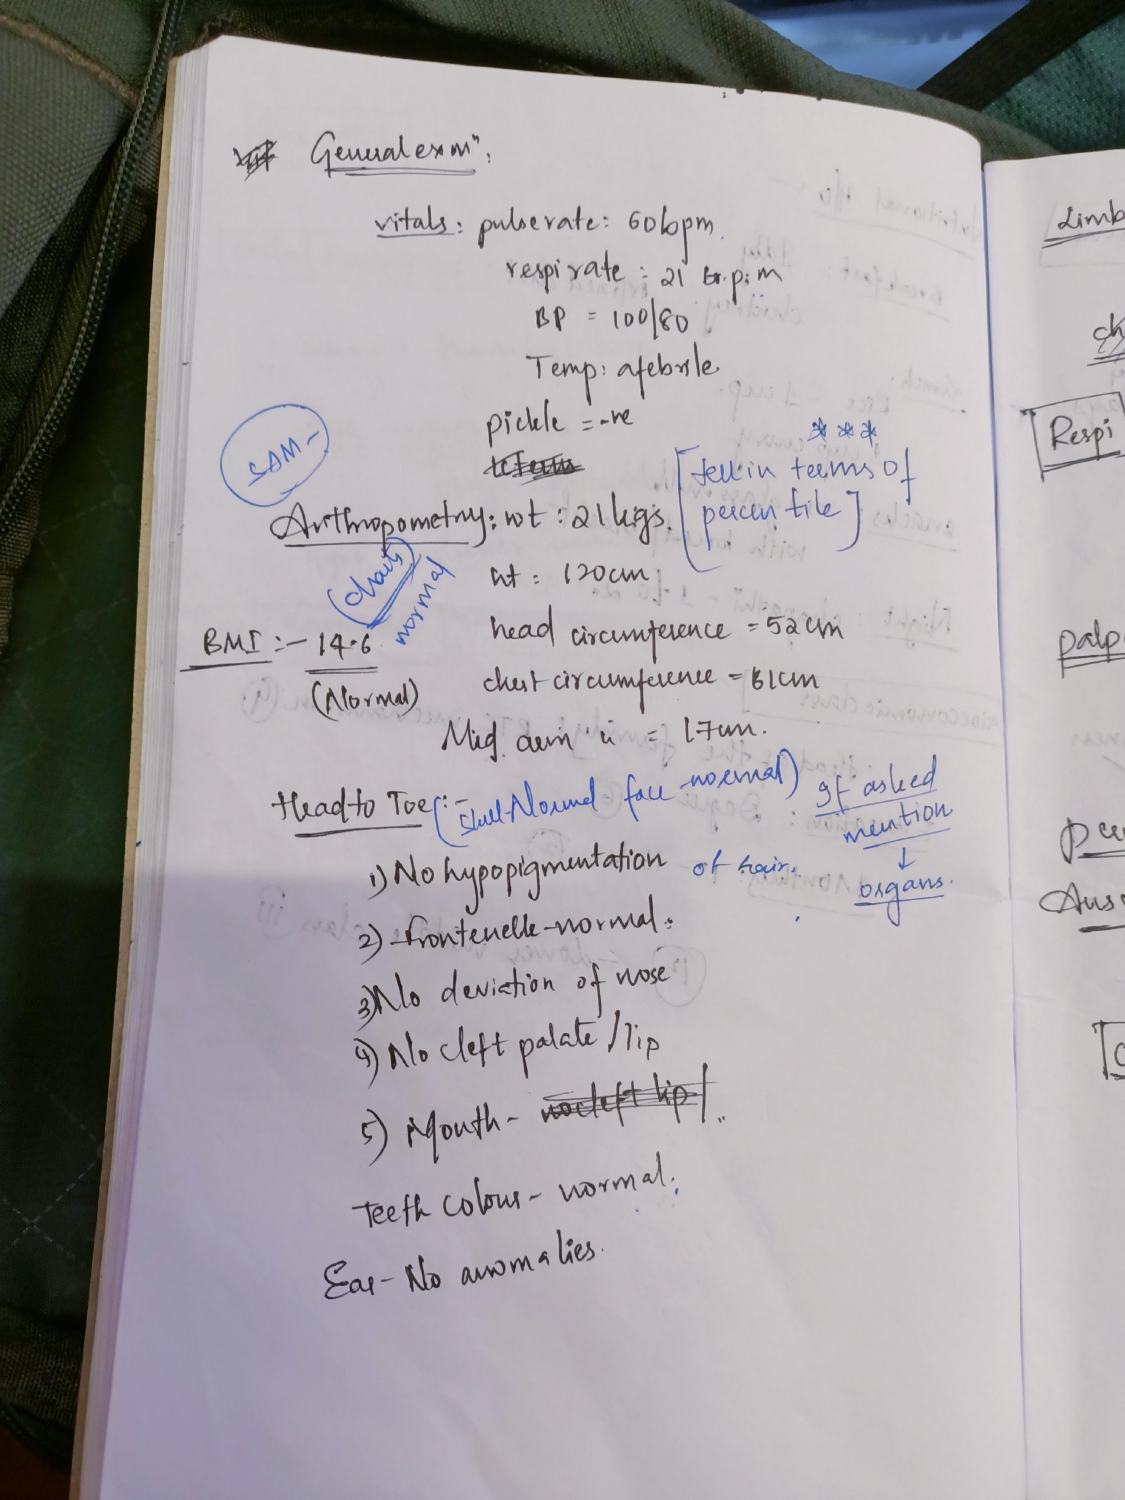 General exm^n:
vitals: pulse rate: 60bpm.
respi rate = 21 br.p.m
BP = 100/80
Temp: afebrile
pickle = -ve
* * *
SAM -
[tell in terms of
percentile]
Anthropometry: wt: 21kgs.
(charts)
normal
ht = 120cm
BMI :- 14.6
(Normal)
head circumference = 52cm
chest circumference = 61cm
Mid arm " = 17cm.
Head to Toe :- (skull-Normal face normal)
If asked
mention
↓
organs.
1) No hypopigmentation of hair.
2) Frontenelle-normal.
3) No deviation of nose
4) No cleft palate / lip
5) Mouth - no cleft lip/
Teeth colour - normal.
Ear - No anomalies.
Limb
Respi
palp
Aus